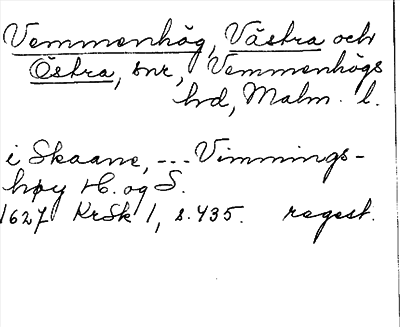 Vemmenhög, Västra och
Östra, snr, Vemmenhögs
hd, Malm. l.
i Skaane, --- Vimmings-
høy H. og S.
1627 KrSk 1, s. 435. regest.